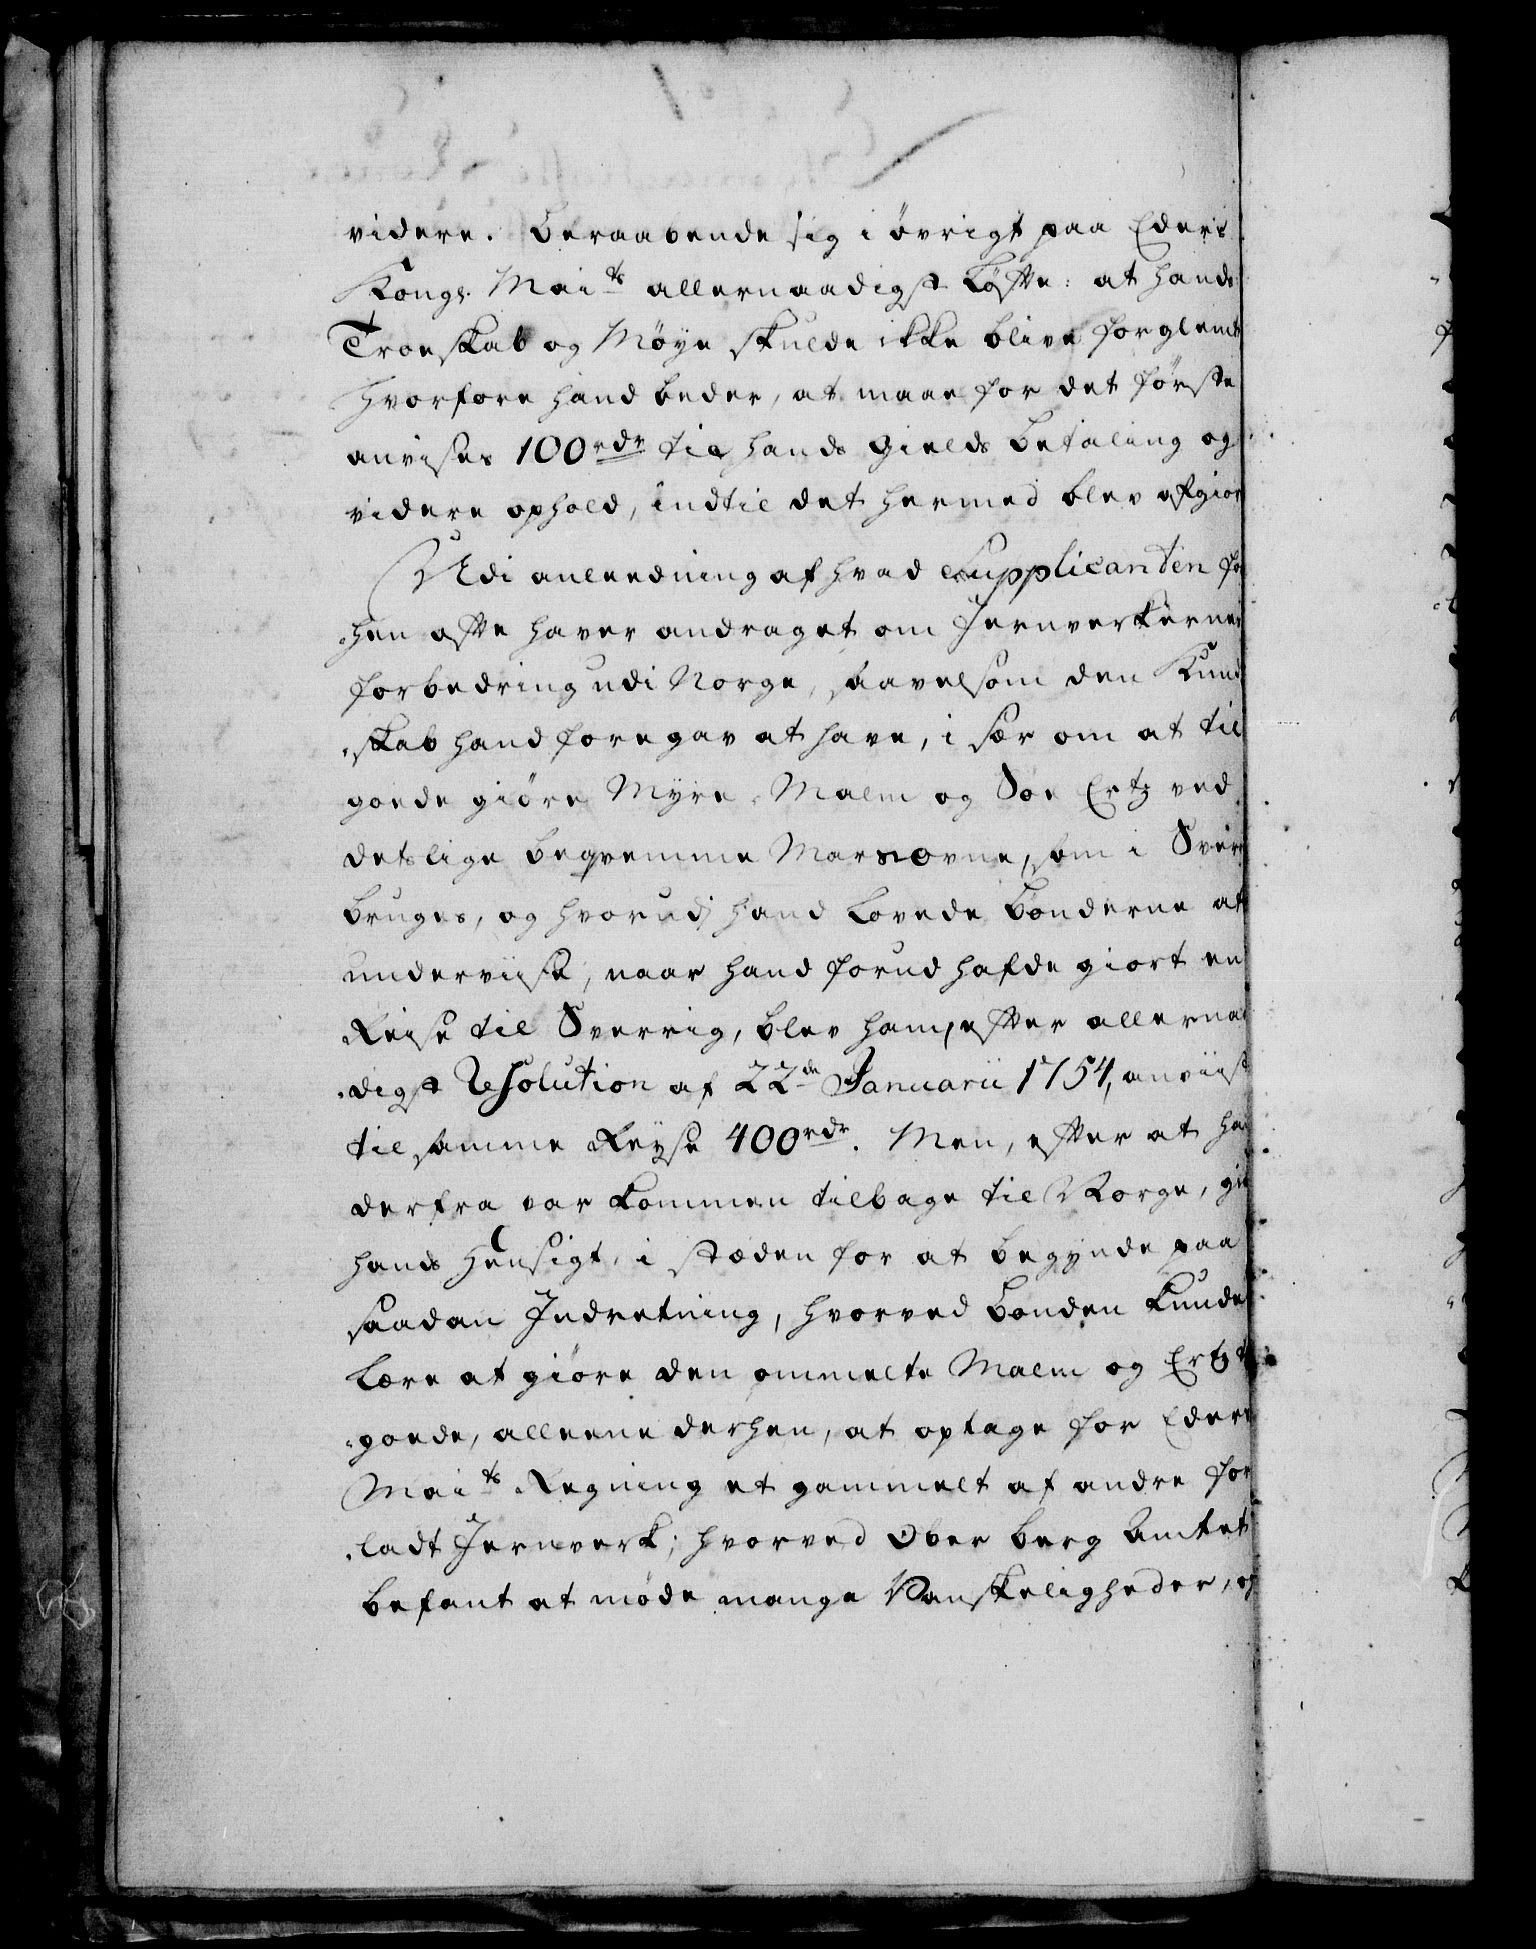 videre. Beraabende sig i øvrigt paa Eders
Kongl. Mai.ts allernaadigst Løfte: at hands
Troeskab og Møye skulde ikke blive forglemt
hvorfore hand beder, at maae for det første
anvises 100 rdr til hands Gields betaling og
videre ophold, indtil det hermed blev afgior
Udi anleedning af hvad Supplicanten for
hen ofte haver andraget om Jernverkernes
forbedring udi Norge, saavelsom den Kund
skab hand foregav at have, i sær om at til
goede giøre Myre-Malm og Søe Ertz ved
detslige beqvemme Marsovne, som i Sverr
bruges, og hvorudj hand lovede Bønderne at
underviise, naar hand forud hafde giort en
Reise til Sverrig, blev ham, efter allernaa
digst Resolution af 22de Januarii 1754, anviist
til samme Reyse 400 rdr. Men, efter at ha
derfra var kommen tilbage til Norge, gik
hands Hensigt, i stæden for at begynde paa
saadan Indretning, hvorved Bonden kunde
lære at giøre den ommelte Malm og Ertz
goede, alleene derhen, at optage for Eders
Mai.ts Regning et gammelt af andre for
ladt Jernverk; hvorved Ober berg Amtet
befant at møde mange Vanskeligheder, og